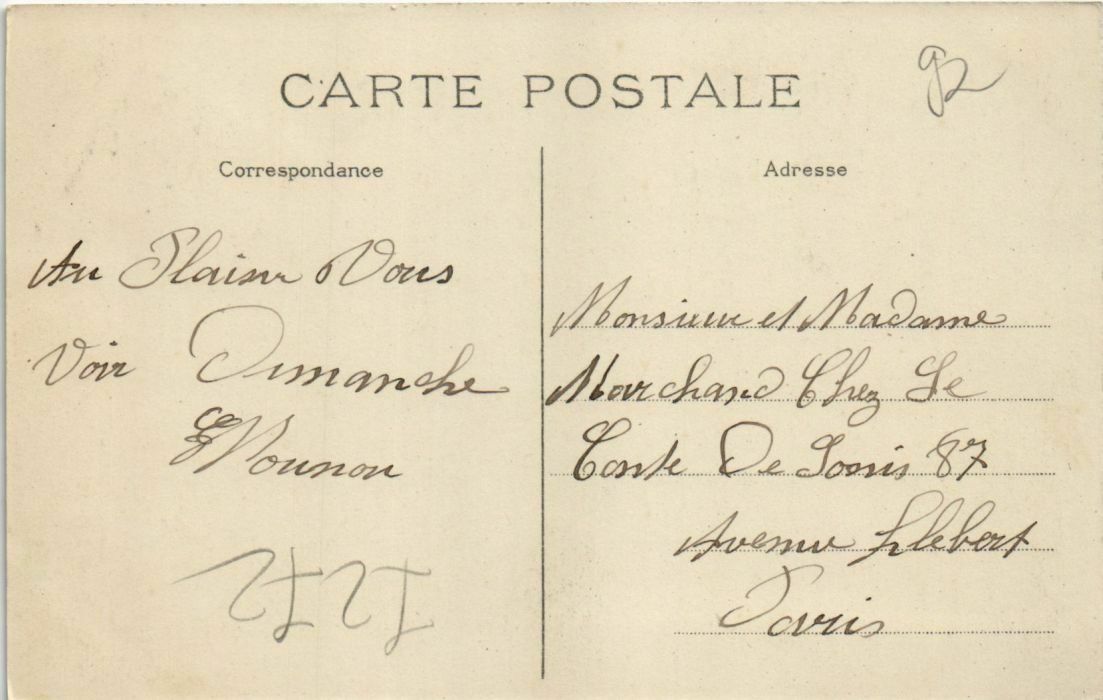 CARTE POSTALE
92
Correspondance
Adresse
Au Plaisir Vous
Voir Dimanche
Monsieur et Madame
Marchand Chez Le
Conte De Sonis 87
Avenue Klebert
Paris